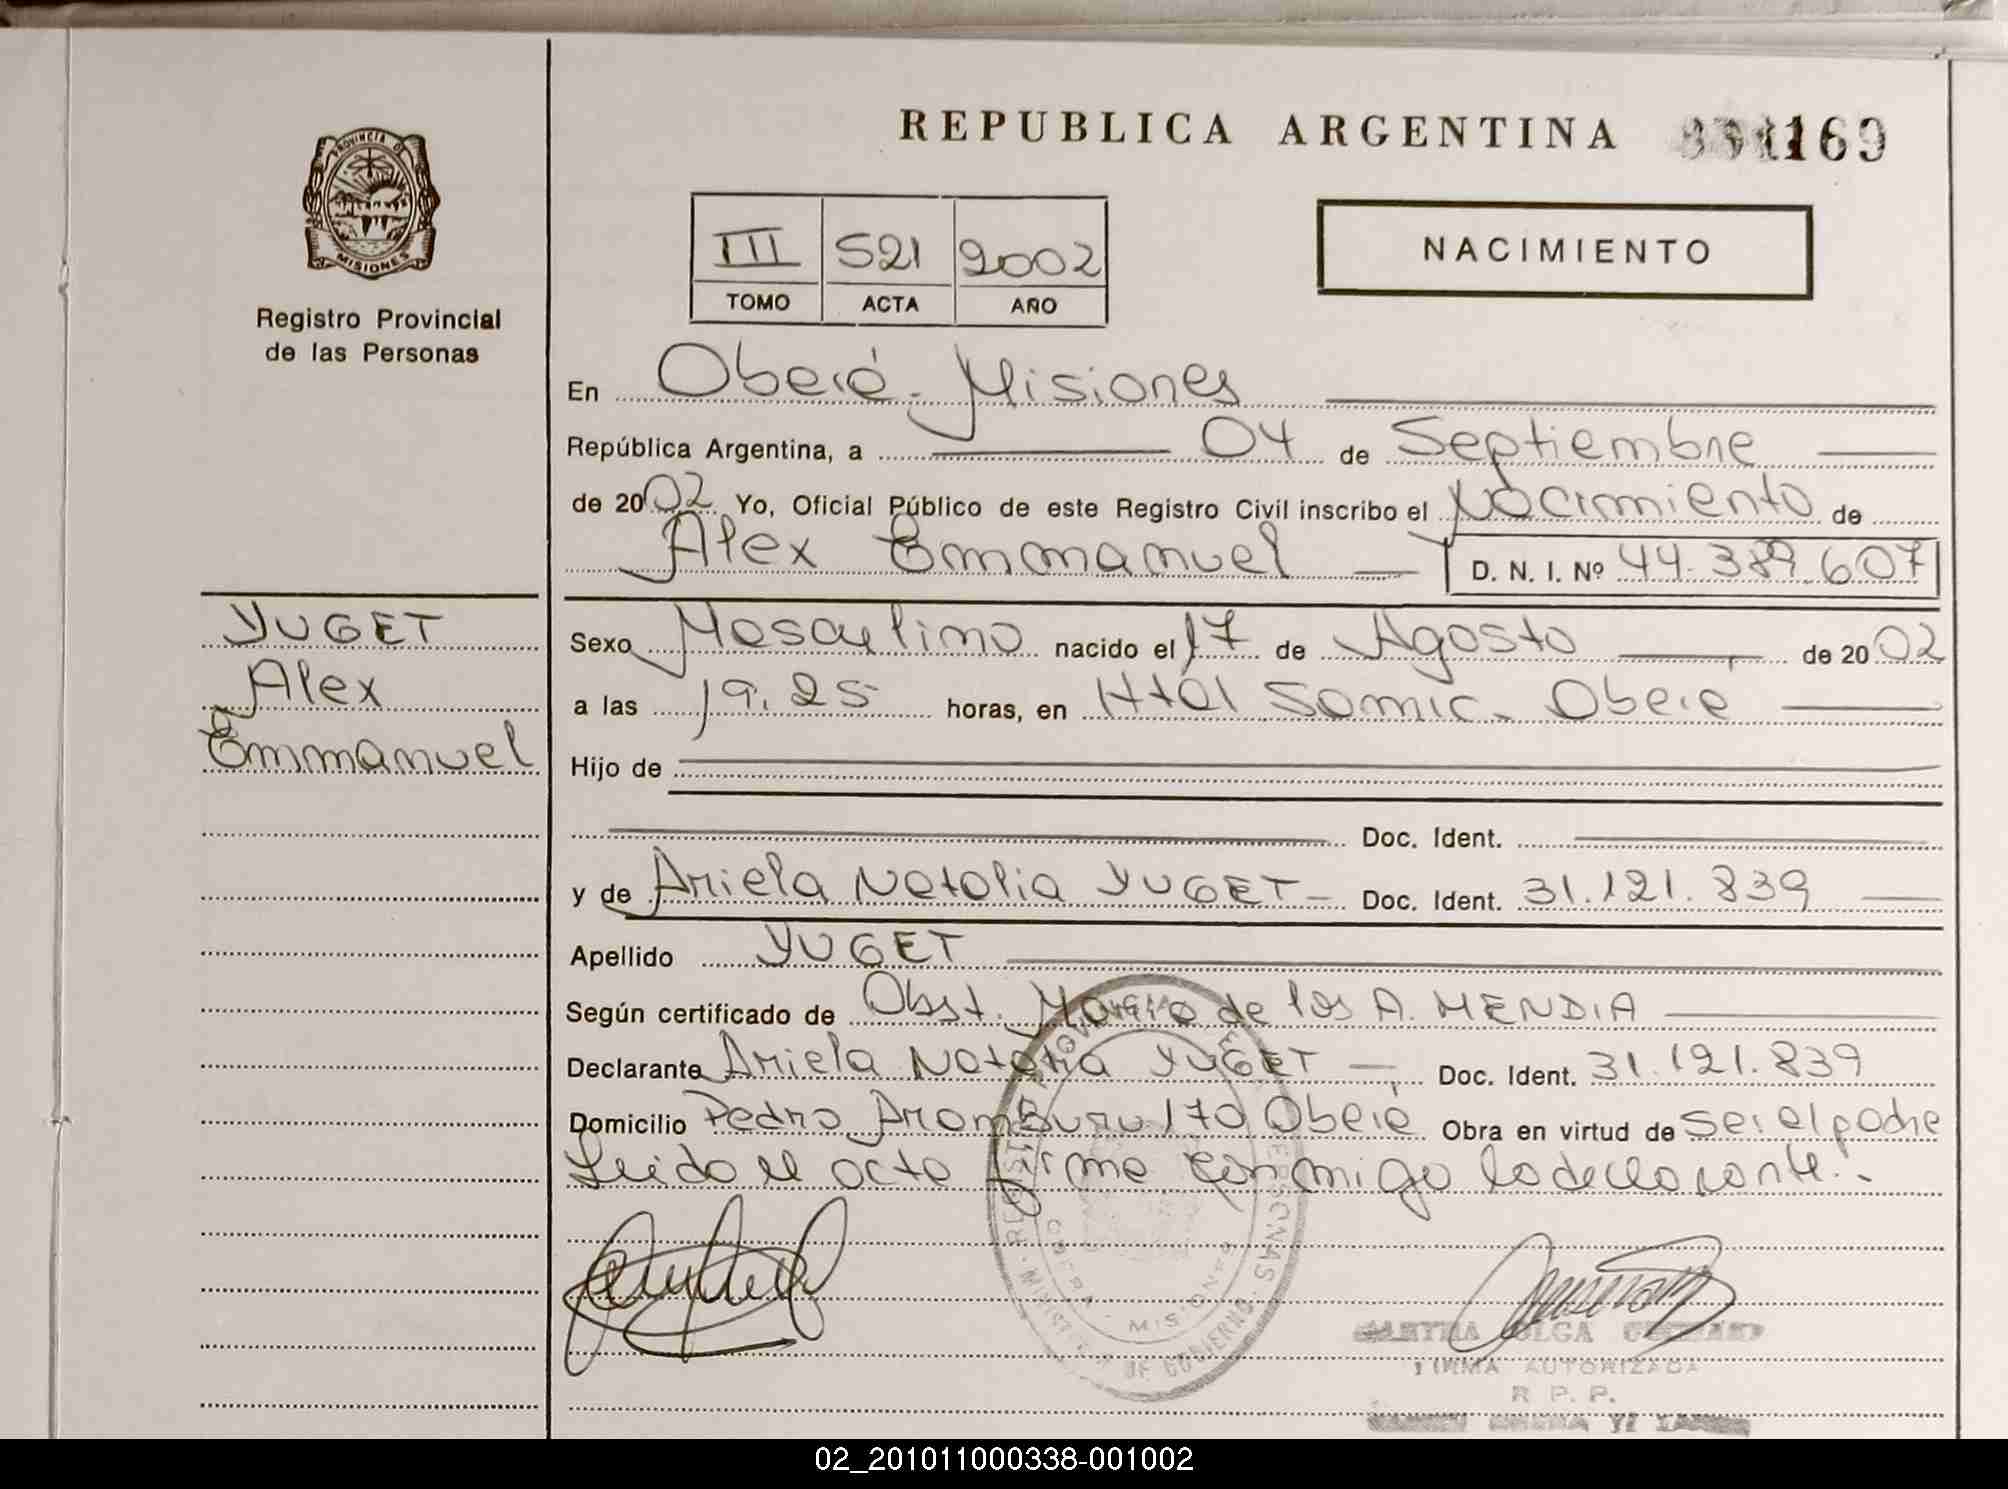 REPUBLICA ARGENTINA
169
PROVINCIA DE
MISIONES
Registro Provincial
de las Personas
III 521 2002
TOMO ACTA AÑO
NACIMIENTO
En Oberá. Misiones
República Argentina, a 04 de Septiembre
de 2002 Yo, Oficial Público de este Registro Civil inscribo el Nacimiento de
Alex Emmanuel D. N. I. Nº 44.389.607
YUGET
Alex
Emmanuel
Sexo Masculino nacido el 17 de Agosto de 2002
a las 19,25 horas, en Htal Samic. Oberá
Hijo de
Doc. Ident.
y de Ariela Natalia YUGET Doc. Ident. 31.121.839
Apellido YUGET
Según certificado de Obst. María de los A. MENDIA
Declarante Ariela Natalia YUGET Doc. Ident. 31.121.839
Domicilio Pedro Aramburu 170 Oberá Obra en virtud de ser el padre
Leido el acta firma conmigo la declarante.
OBERA - MISIONES
MINISTERIO DE GOBIERNO
MARTHA OLGA
FIRMA AUTORIZADA
R. P. P.
02_201011000338-001002